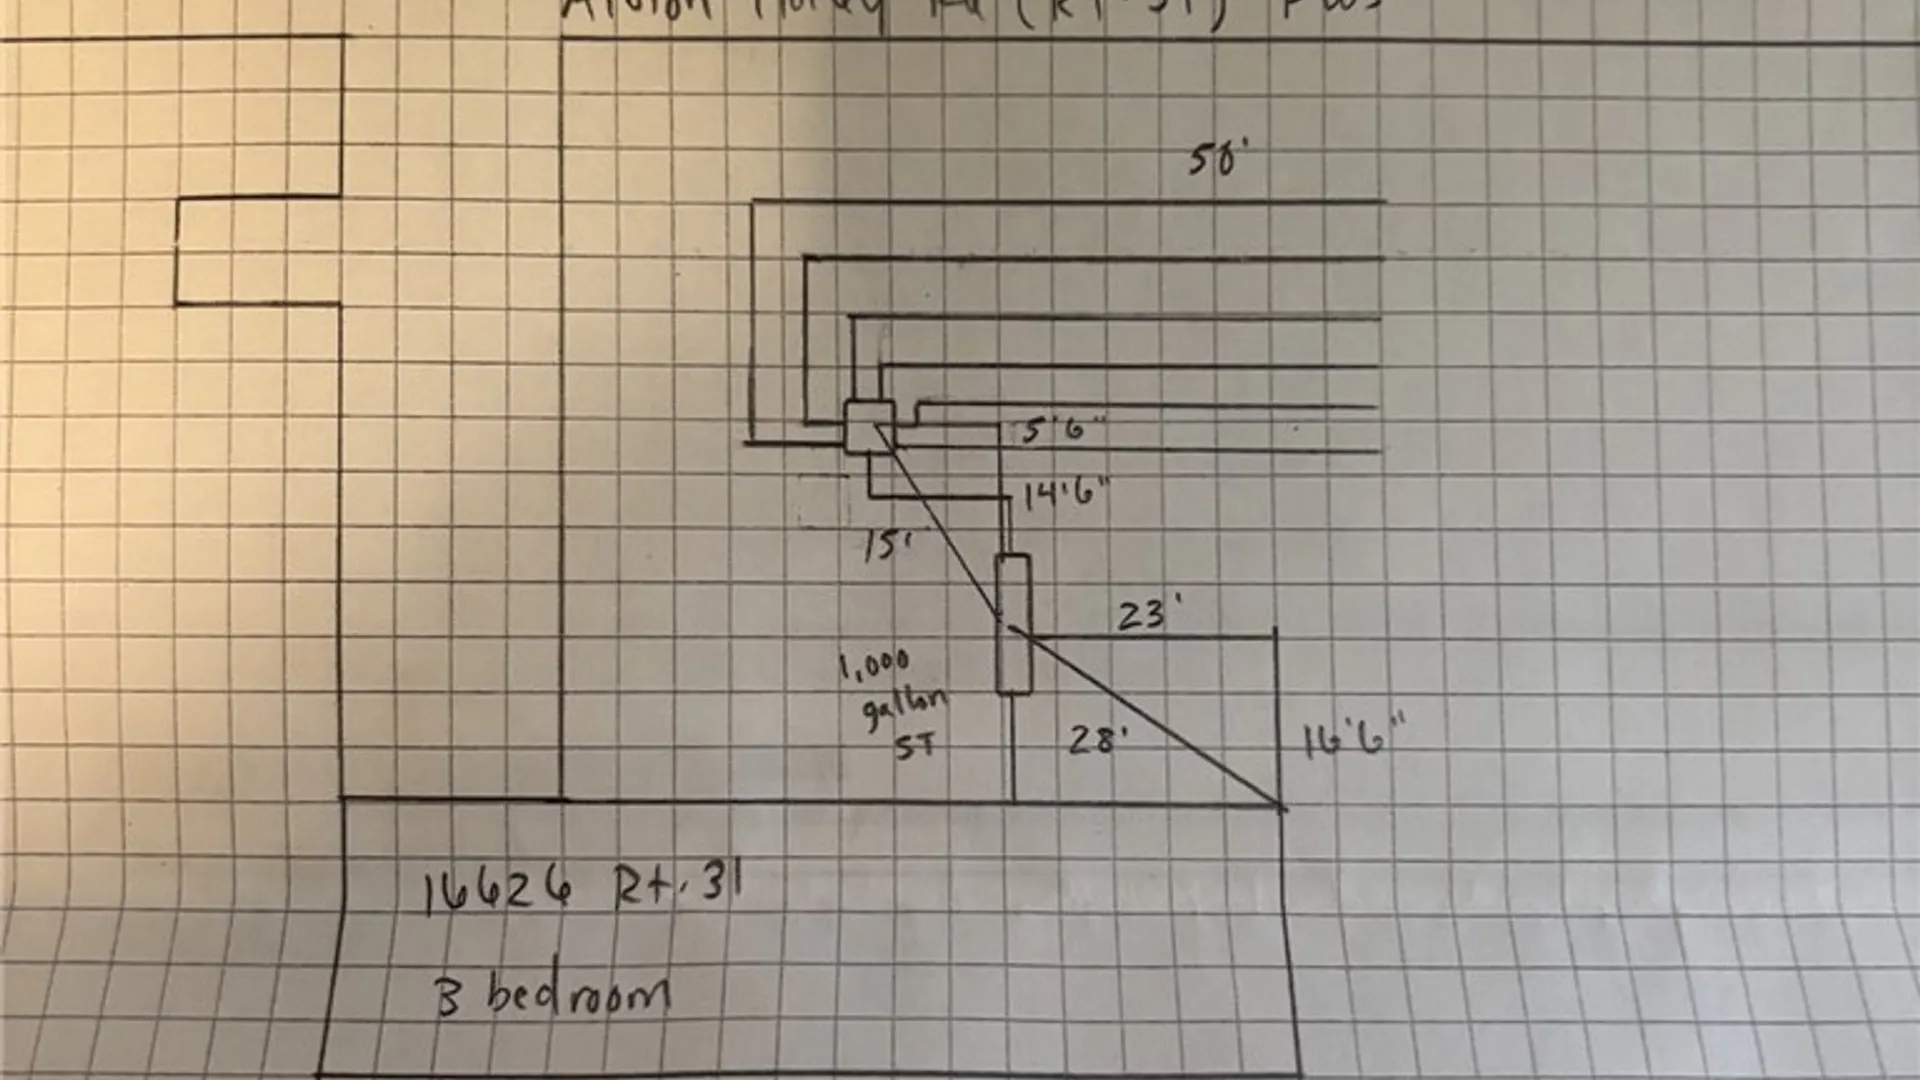 (RT. 31)
50'
5'6"
14'6"
15'
23'
1,000
gallon
ST
28'
16'6"
16626 Rt. 31
3 bedroom